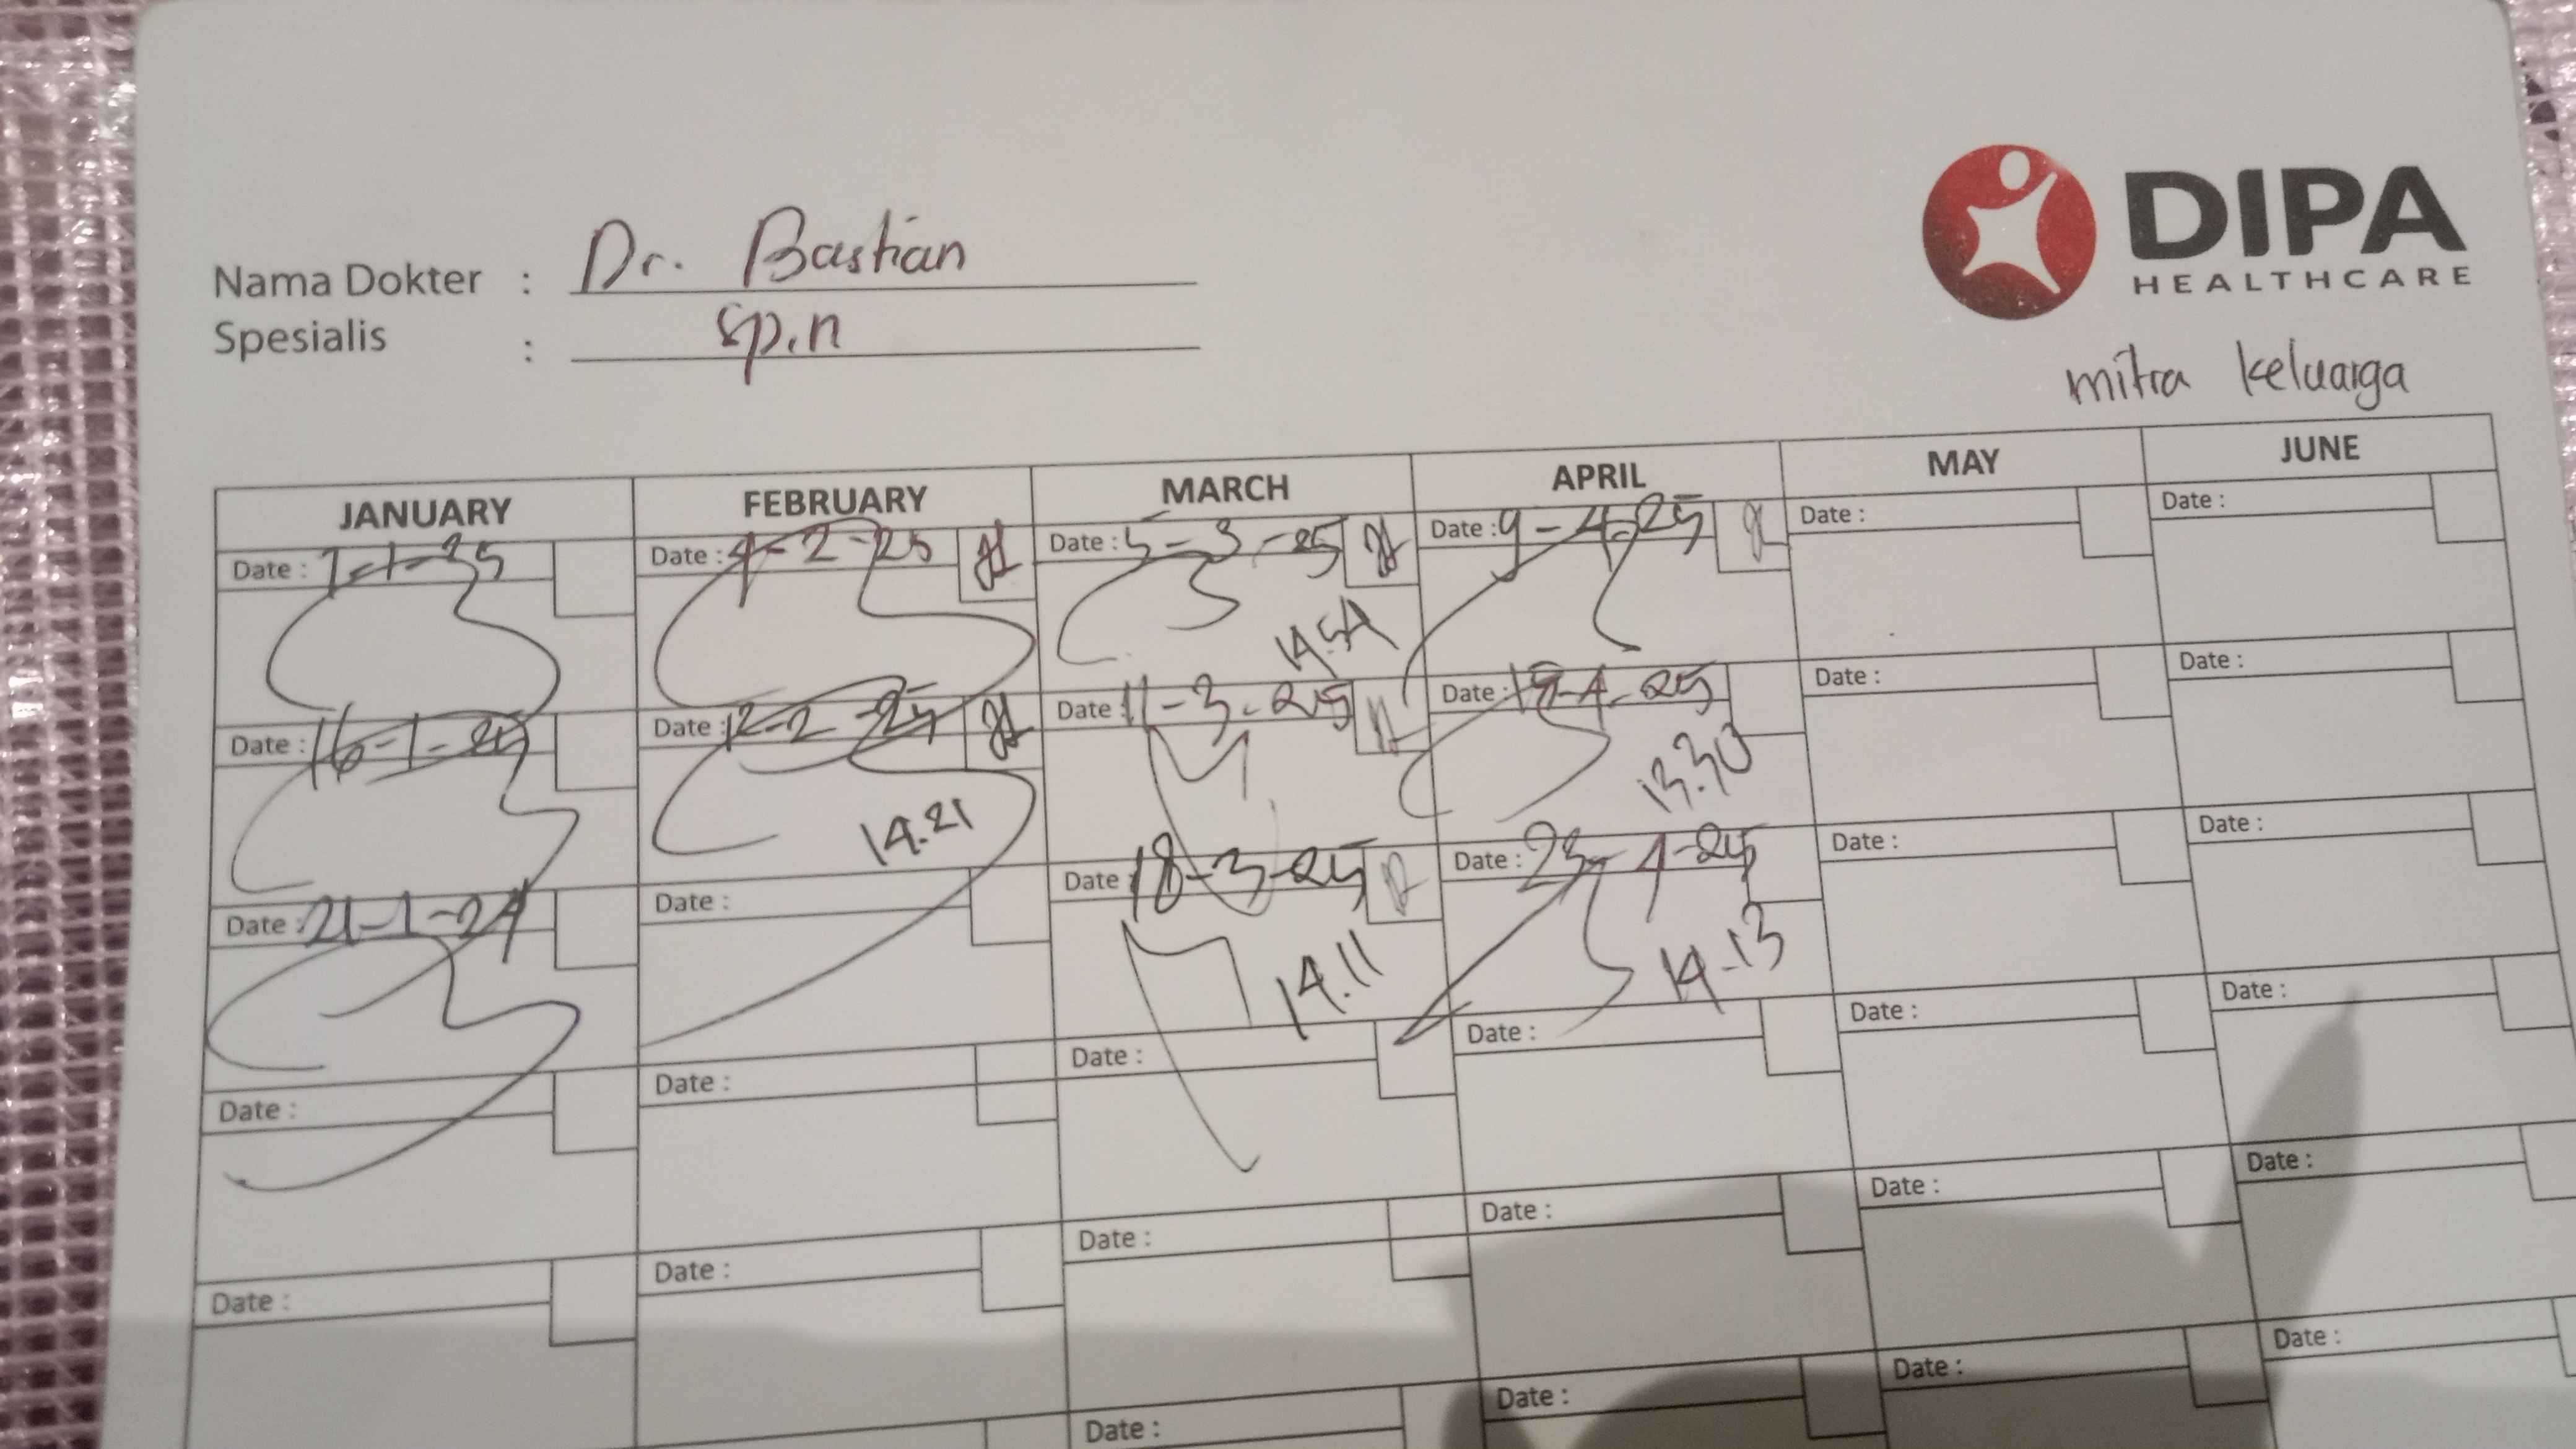 DIPA
HEALTHCARE
Nama Dokter : Dr. Bastian
Spesialis : Sp.n
mitra keluarga
JANUARY FEBRUARY MARCH APRIL MAY JUNE
Date : 7-1-25 Date : 4-2-25 Date : 5-3-25 Date : 9-4-25 Date : Date :
14.54
Date : 16-1-25 Date : 12-2-25 Date : 11-3-25 Date : 19-4-25 Date : Date :
14.21 13.30
Date : 21-1-24 Date : Date : 18-3-25 Date : 23-4-25 Date : Date :
14.11 14-13
Date : Date : Date : Date : Date : Date :
Date : Date : Date : Date : Date : Date :
Date : Date : Date : Date :